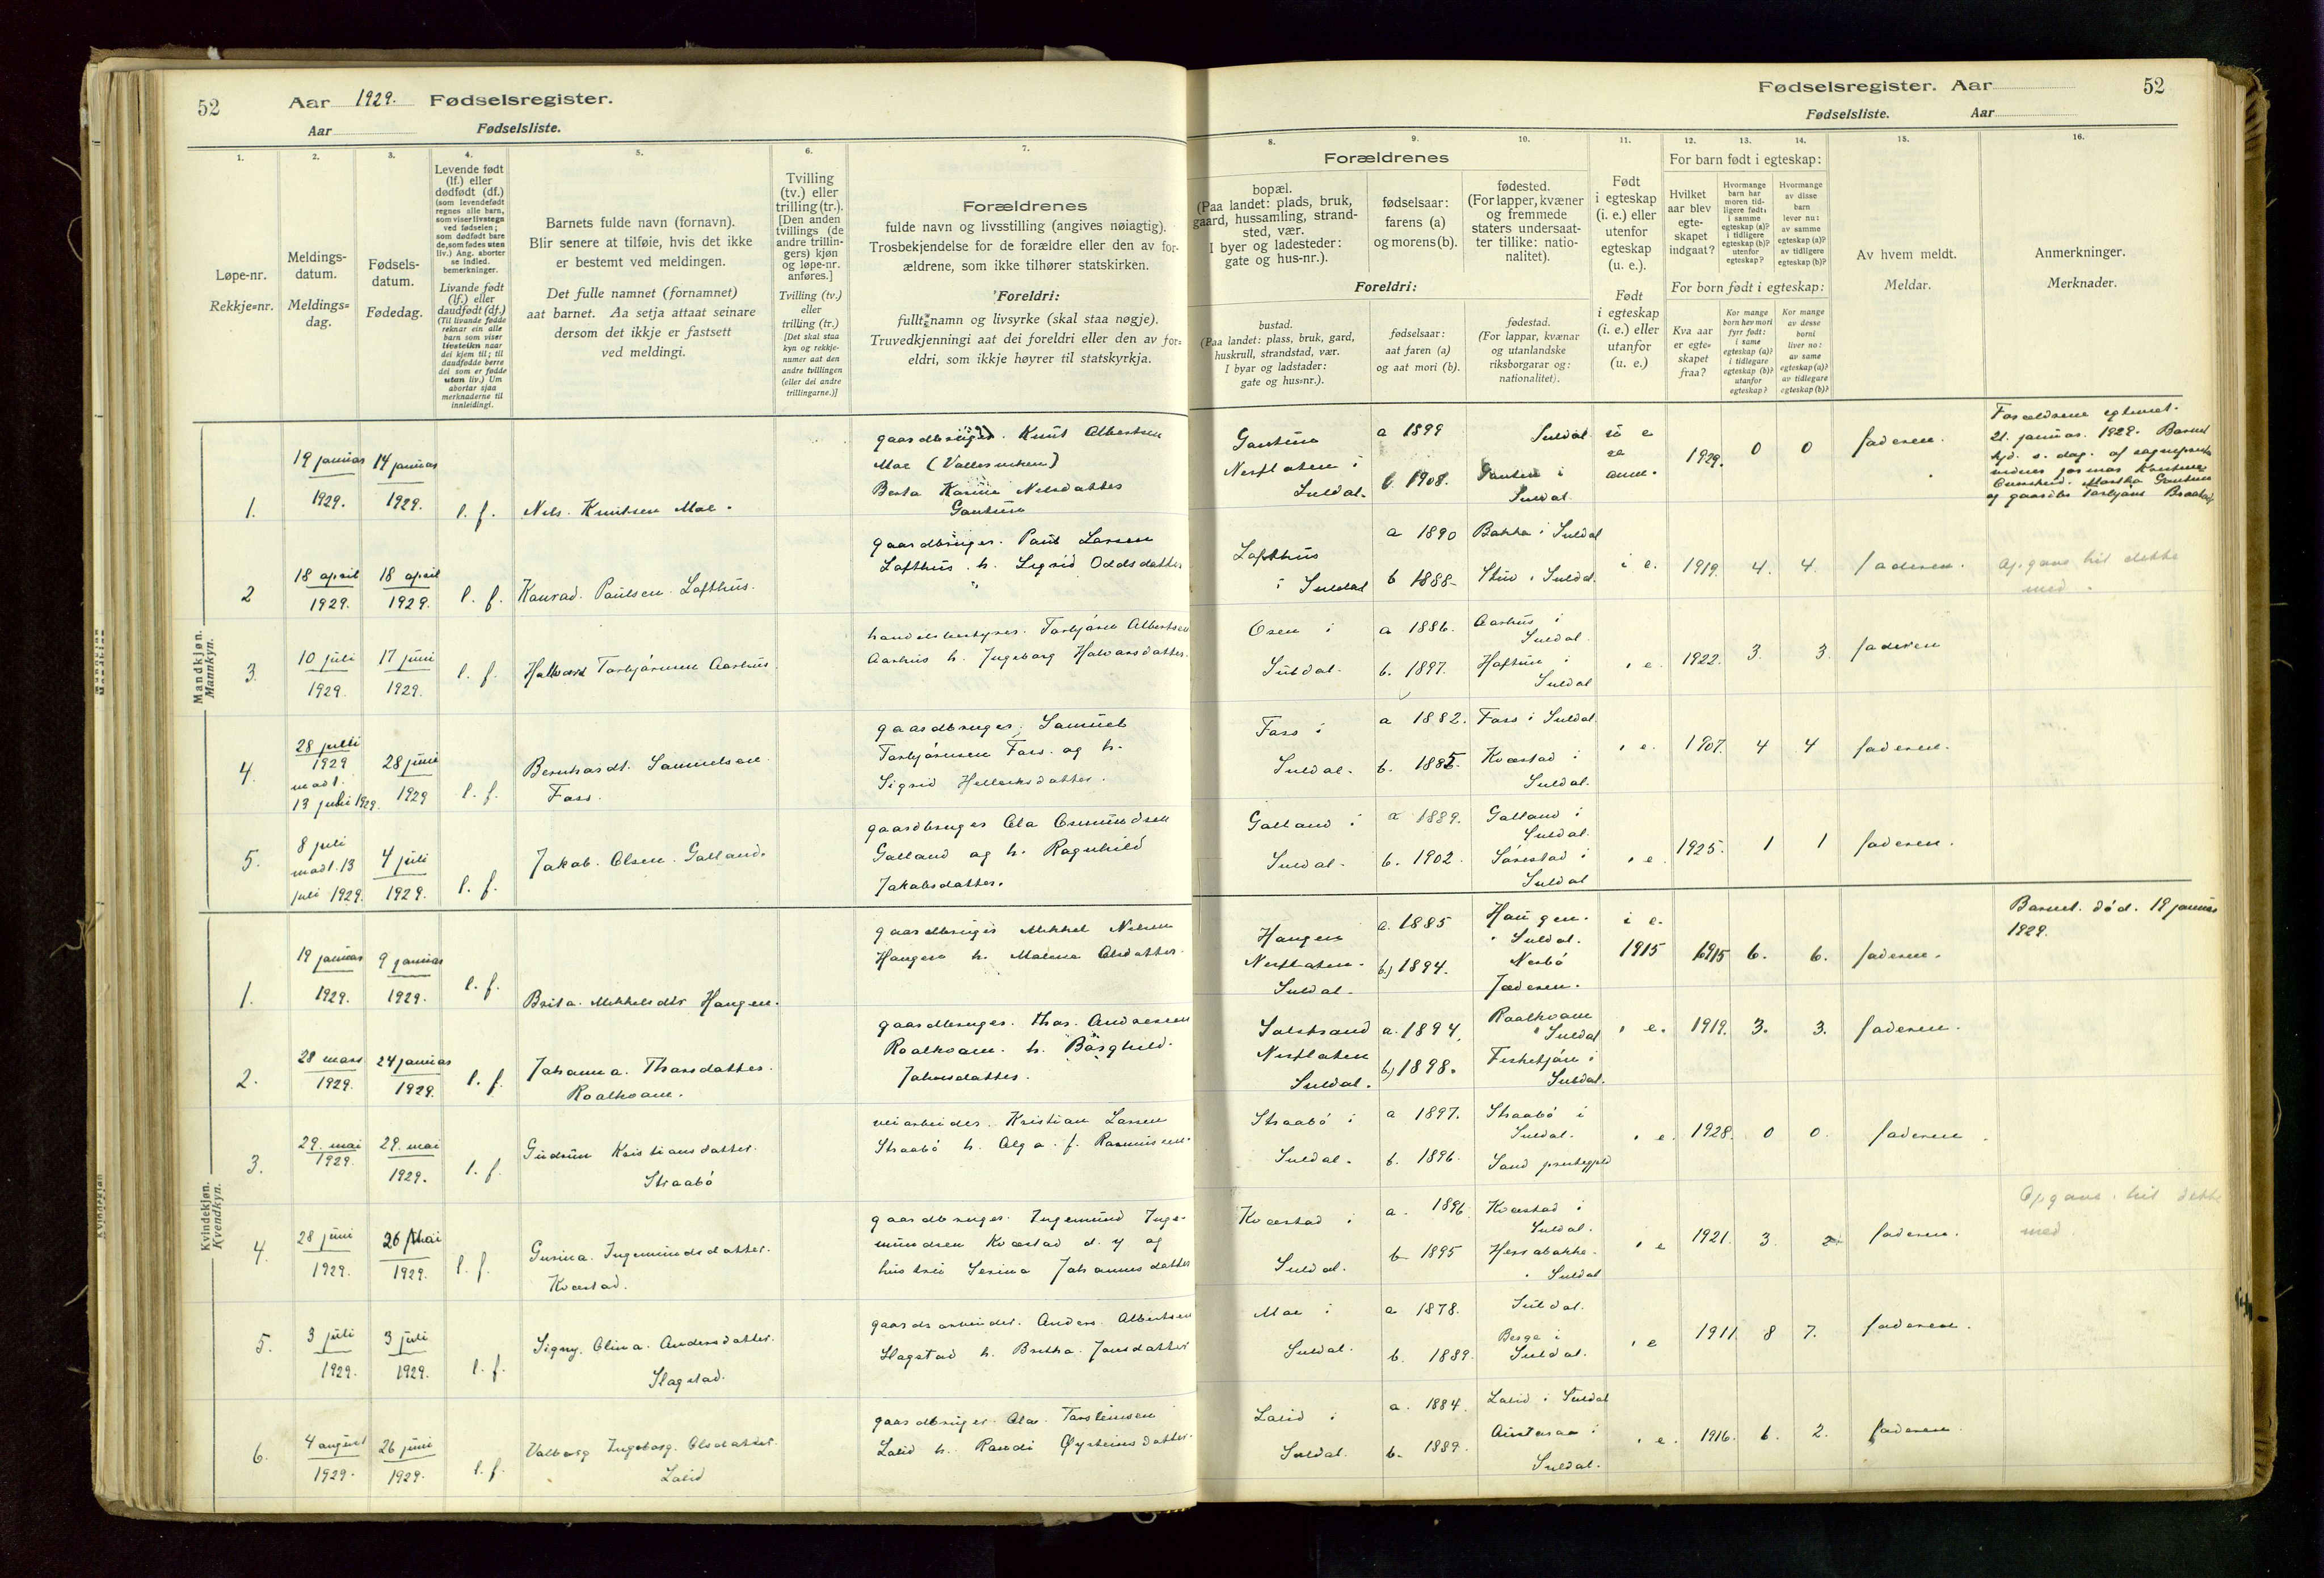 52 Aar 1929. Fødselsregister.
Aar Fødselsliste.
Fødselsregister. Aar 52
Fødselsliste. Aar
1. 2. 3. 4. 5. 6. 7. 8. 9. 10. 11. 12. 13. 14. 15. 16.
Løpe-nr.
Rekkje=nr.
Meldings-
datum.
Meldings=
dag.
Fødsels-
datum.
Fødedag.
Levende født
(lf.) eller
dødfødt (df.)
(som levendefødt
regnes alle barn,
som viser livstegn
ved fødselen;
som dødfødt bare
de, som fødes uten
liv.) Ang. aborter
se indled.
bemerkninger.
Livande født
(lf.) eller
daudfødt (df.)
(Til livande fødde
reknar ein alle
barn som viser
livsteikn naar
dei kjem til; til
daudfødde berre
dei som er fødde
utan liv.) Um
abortar sjaa
merknaderne til
innleidingi.
Barnets fulde navn (fornavn).
Blir senere at tilføie, hvis det ikke
er bestemt ved meldingen.
Det fulle namnet (fornamnet)
aat barnet. Aa setja attaat seinare
dersom det ikkje er fastsett
ved meldingi.
Tvilling
(tv.) eller
trilling (tr.).
[Den anden
tvillings (de
andre trillin-
gers) kjøn
og løpe-nr.
anføres.]
Tvilling (tv.)
eller
trilling (tr.)
[Det skal staa
kyn og rekkje-
numer aat den
andre tvillingen
(eller dei andre
trillingarne.)]
Forældrenes
fulde navn og livsstilling (angives nøiagtig).
Trosbekjendelse for de forældre eller den av for-
ældrene, som ikke tilhører statskirken.
Foreldri:
fullt namn og livsyrke (skal staa nøgje).
Truvedkjenningi aat dei foreldri eller den av for=
eldri, som ikkje høyrer til statskyrkja.
Forældrenes
bopæl.
(Paa landet: plads, bruk,
gaard, hussamling, strand-
sted, vær.
I byer og ladesteder:
gate og hus-nr.).
fødselsaar:
farens (a)
og morens (b).
fødested.
(For lapper, kvæner
og fremmede
staters undersaat-
ter tillike: natio-
nalitet).
Foreldri:
bustad.
(Paa landet: plass, bruk, gard,
huskrull, strandstad, vær.
I byar og ladstader:
gate og hus=nr.).
fødselsaar:
aat faren (a)
og aat mori (b).
fødestad.
(For lappar, kvænar
og utanlandske
riksborgarar og:
nationalitet).
Født
i egteskap
(i. e.) eller
utenfor
egteskap
(u. e.).
Født
i egteskap
(i. e.) eller
utanfor
(u. e.)
For barn født i egteskap:
Hvilket
aar blev
egte-
skapet
indgaat?
Hvormange
barn har
moren tid-
ligere født:
i samme
egteskap (a)?
i tidligere
egteskap (b)?
utenfor
egteskap?
Hvormange
av disse
barn
lever nu:
av samme
egteskap (a)?
av tidligere
egteskap (b)?
For born født i egteskap:
Kva aar
er egte=
skapet
fraa?
Kor mange
born hev mori
fyrr født:
i same
egteskap (a)?
i tidlegare
egteskap (b)?
utanfor
egteskap?
Kor mange
av desse
borni
liver no:
av same
egteskap (a)?
av tidlegare
egteskap (b)?
Av hvem meldt.
Meldar.
Anmerkninger.
Merknader.
Mandkjøn.
Mannkyn.
1. 19 januar 1929. 14 januar 1929. l. f. Nils. Knutsen Moe.
gaardbruger. Knut Albertsen
Moe
Berta Karine Nilsdatter
Gautun
Gautun
Nesflaten i
Suldal.
a 1899 Suldal.
b 1908. Gauten i
Suldal
1929. 0 0 faderen.
21. januar. 1929. Barnet
2 18 april 1929. 18 april 1929. l. f. Konrad. Paulsen. Lofthus.
gaardbruger. Paul Larsen
Lofthus. h. Sigrid Oddsdatter
Lofthus
i Suldal
a 1890 Bakka i Suldal
b 1888 i Suldal.
i e. 1919. 4. 4. faderen.
Opgave hit dette
med.
3. 10 juli 1929. 17 juni 1929. l. f. Halvard Torbjørnsen Aarhus.
handelsbestyrer. Torbjørn Albertsen
Aarhus h. Ingeborg Halvorsdatter.
Osen i
Suldal.
a 1886. Aarhus i
Suldal.
b. 1897. Haftun i
Suldal
i e. 1922. 3. 3. faderen
4. 28 juli 1929 madt. 13 juli 1929. 28 juni 1929 l. f. Bernhardt. Samuelsen.
Foss.
gaardbruger. Samuel
Torbjørnsen Foss. og h.
Sigrid Helleiksdatter.
Foss i
Suldal.
a 1882. Foss i Suldal.
b. 1885. Kvæstad i
Suldal.
i e. 1907. 4 4 faderen.
5. 8 juli madt. 13 juli 1929. 4 juli 1929. l. f. Jakob. Olsen. Galland.
gaardbruger Ola Osmundsen
Galland og h. Ragnhild
Jakobsdatter.
Galland i
Suldal.
a 1889. Galland i
Suldal.
b. 1902. Sørestad i
Suldal
i e. 1925. 1 1 faderen.
Kvindekjøn.
Kvendkyn.
1. 19 januar 1929. 9 januar 1929. l. f. Brita. Mikkelsdtr Haugen.
gaardbruger Mikkel Nilsen
Haugen h. Malena Olsdatter.
Haugen
Nesflaten.
Suldal.
a. 1885 Haugen.
i Suldal.
b) 1894. Nesbø
Jæderen.
i e.
1915 1915 6. 6. faderen.
Barnet. død. 18 januar
1929.
2. 28 mars 1929. 24 januar 1929. l. f. Johanna. Thorsdatter.
Roalkvam.
gaardbruger. Thor. Andersen
Roalkvam. h. Borghild.
Jakobsdatter.
Solstrand
Nesflaten
Suldal.
a. 1894. Roalkvam
i Suldal
b) 1898. Fiskekjøn i
Suldal.
i e. 1919. 3. 3. faderen.
3. 29. mai 1929. 29. mai 1929. l. f. Gudrun Kristiansdatter.
Straabø
veiarbeider. Kristian Larsen
Straabø h. Olga. f. Rasmussen.
Straabø i
Suldal.
a 1897. Straabø i
Suldal.
b. 1896. Sand prestegjeld
i e. 1928. 0 0. faderen
4. 28 juni 1929. 26 Mai 1929. l. f. Gurina. Ingemundsdatter.
Kvæstad.
gaardbruger. Ingemund Inge-
mundsen Kvæstad d. y og
hustru Serina Johannesdatter
Kvæstad i
Suldal.
a. 1896. Kvæstad i
Suldal.
b 1895 Herabakke.
i Suldal
i e 1921. 3. faderen.
Opgave. hit dette
med.
5. 3 juli 1929. 3 juli 1929. l. f. Signy. Olina. Andersdatter.
Slagstad.
gaardsarbeider. Anders. Albertsen
Slagstad h. Britha. Jonsdatter
Moe i
Suldal.
a 1878. Suldal.
b. 1889. Berge i
Suldal.
i e 1911. 8 7. faderen.
6. 4 august 1929. 26 juni 1929. l. f. Valborg Ingeborg. Olsdatter.
Lalid
gaardbruger. Ola. Torsteinsen
Lalid h. Randi Øysteinsdatter.
Lalid i
Suldal.
a. 1884. Lalid i Suldal
b. 1889. i
Suldal.
i e. 1916. 6. 2. faderen.